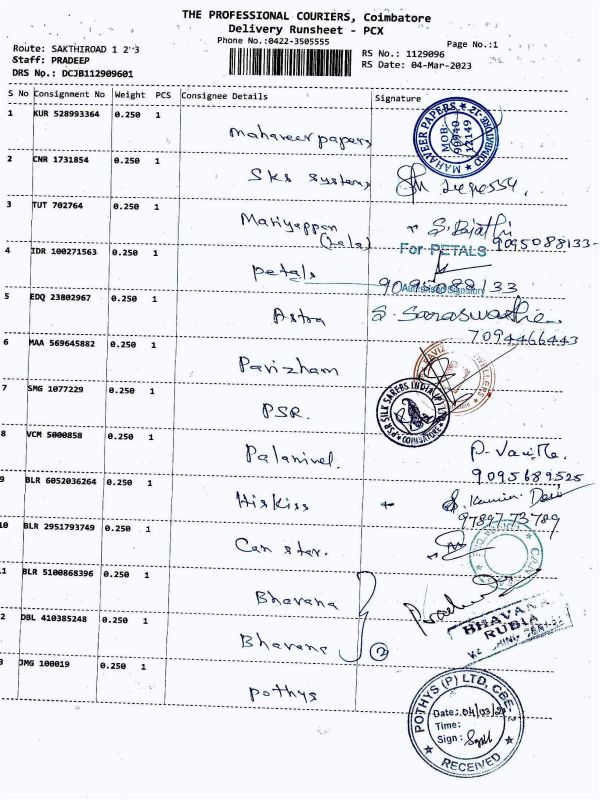 THE PROFESSIONAL COURIERS, Coimbatore
Delivery Runsheet - PCX
Phone No.:0422-3505555
Page No.:1
Route: SAKTHIROAD 1 2 3
Staff: PRADEEP
DRS No.: DCJB112909601
RS No.: 1129096
RS Date: 04-Mar-2023
S No Consignment No Weight PCS Consignee Details Signature
1 KUR 528993364 0.250 1 Mahaveer papers
MAHAVEER PAPERS COIMBATORE-12 MOB: 90940 12149
2 CNR 1731854 0.250 1 SKS Systems
3 TUT 702764 0.250 1 Mariyappan (Lala)
9095088133-
4 IDR 100271563 0.250 1 petals
For PETALS
Authorised Signatory
9095088133
5 EDQ 23802967 0.250 1 Astra S. Saraswathi
7094466443
6 MAA 569645882 0.250 1 Pavizham
7 SMG 1077229 0.250 1 PSR.
PSR SILK SAREES INDIA (P) LTD COIMBATORE
8 VCM 5000858 0.250 1 Palanivel.
9095689525
9 BLR 6052036264 0.250 1 Hiskiss
97897 73789
10 BLR 2951793749 0.250 1 Can star.
11 BLR 5100868396 0.250 1 Bhavana
BHAVANA RUBIA
2 DBL 410385248 0.250 1 Bhavana 2
3 JMG 100019 0.250 1 pothys
POTHYS (P) LTD, CBE-
Date: 04/03/23
Time:
Sign:
RECEIVED